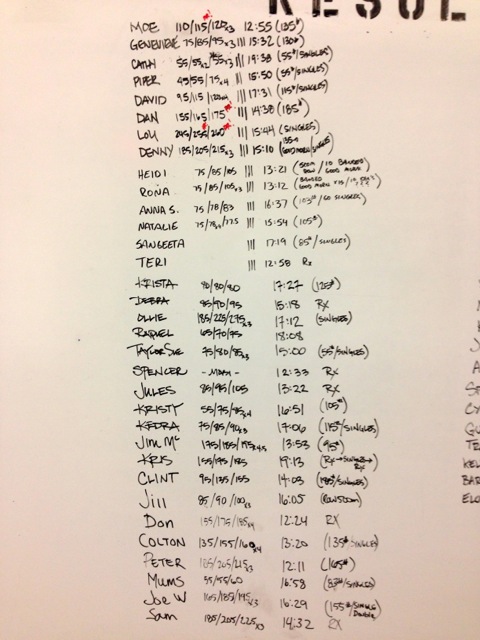 RESUL
MOE 110/115/120x3 12:55 (135#)
GENEVIEVE 75/85/95x3 ||| 15:32 (130#)
CATHY 55/55x2/55x3 ||| 19:38 (55#/SINGLES)
PIPER 45/55/75x4 ||| 15:50 (55#/SINGLES)
DAVID 95/115 ||| 17:31 (115#/SINGLES)
DAN 155/165/175 ||| 14:38 (185#)
LOU 245/255/260 ||| 15:44 (SINGLES)
DENNY 185/205/215x3 ||| 15:10
HEIDI 75/85/85 ||| 13:21
RONA 75/85/105x3 ||| 13:12
ANNA S. 75/78/83 ||| 16:37 (103#/60 SINGLES)
NATALIE ||| 15:54 (105#)
SANGEETA ||| 17:19 (85#/SINGLES)
TERI ||| 12:58 Rx
KRISTA 17:27 (125#)
DEBRA 85/90/95 15:18 RX
OLLIE 185/225/275x3 17:12 (SINGLES)
RAQUEL 65/70/75 18:08
TAYLOR SUE 75/80/85x3 15:00 (55#/SINGLES)
SPENCER 12:33 RX
JULES 85/95/105 13:22 RX
KRISTY 55/75/85x4 16:51 (105#)
KEDRA 75/85/90x3 17:06 (115#/SINGLES)
JIM Mc 175/185/195x4.5 13:53 (95#)
KRIS 155/175/185 19:13 (RX→SINGLES→RX)
CLINT 95/135/155 14:03 (185#/SINGLES)
Jill 85/90/100x3 16:05
Don 155/175/185x4 12:24 RX
COLTON 135/155/160x4 13:20 (135#/SINGLES)
PETER 185/205/215x3 12:11 (165#)
MUMS 55/55/60 16:58 (83#/SINGLES)
Joe W 165/185/195x3 16:29 (155#/Single Double)
Sam 185/205/225x3 14:32 RX